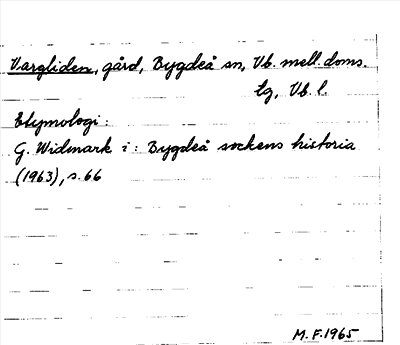 Vargliden, gård, Bygdeå sn, Vb. mell. doms.
lg, Vb. l.
Etymologi:
G. Widmark i: Bygdeå sockens historia
(1963), s. 66
M. F. 1965